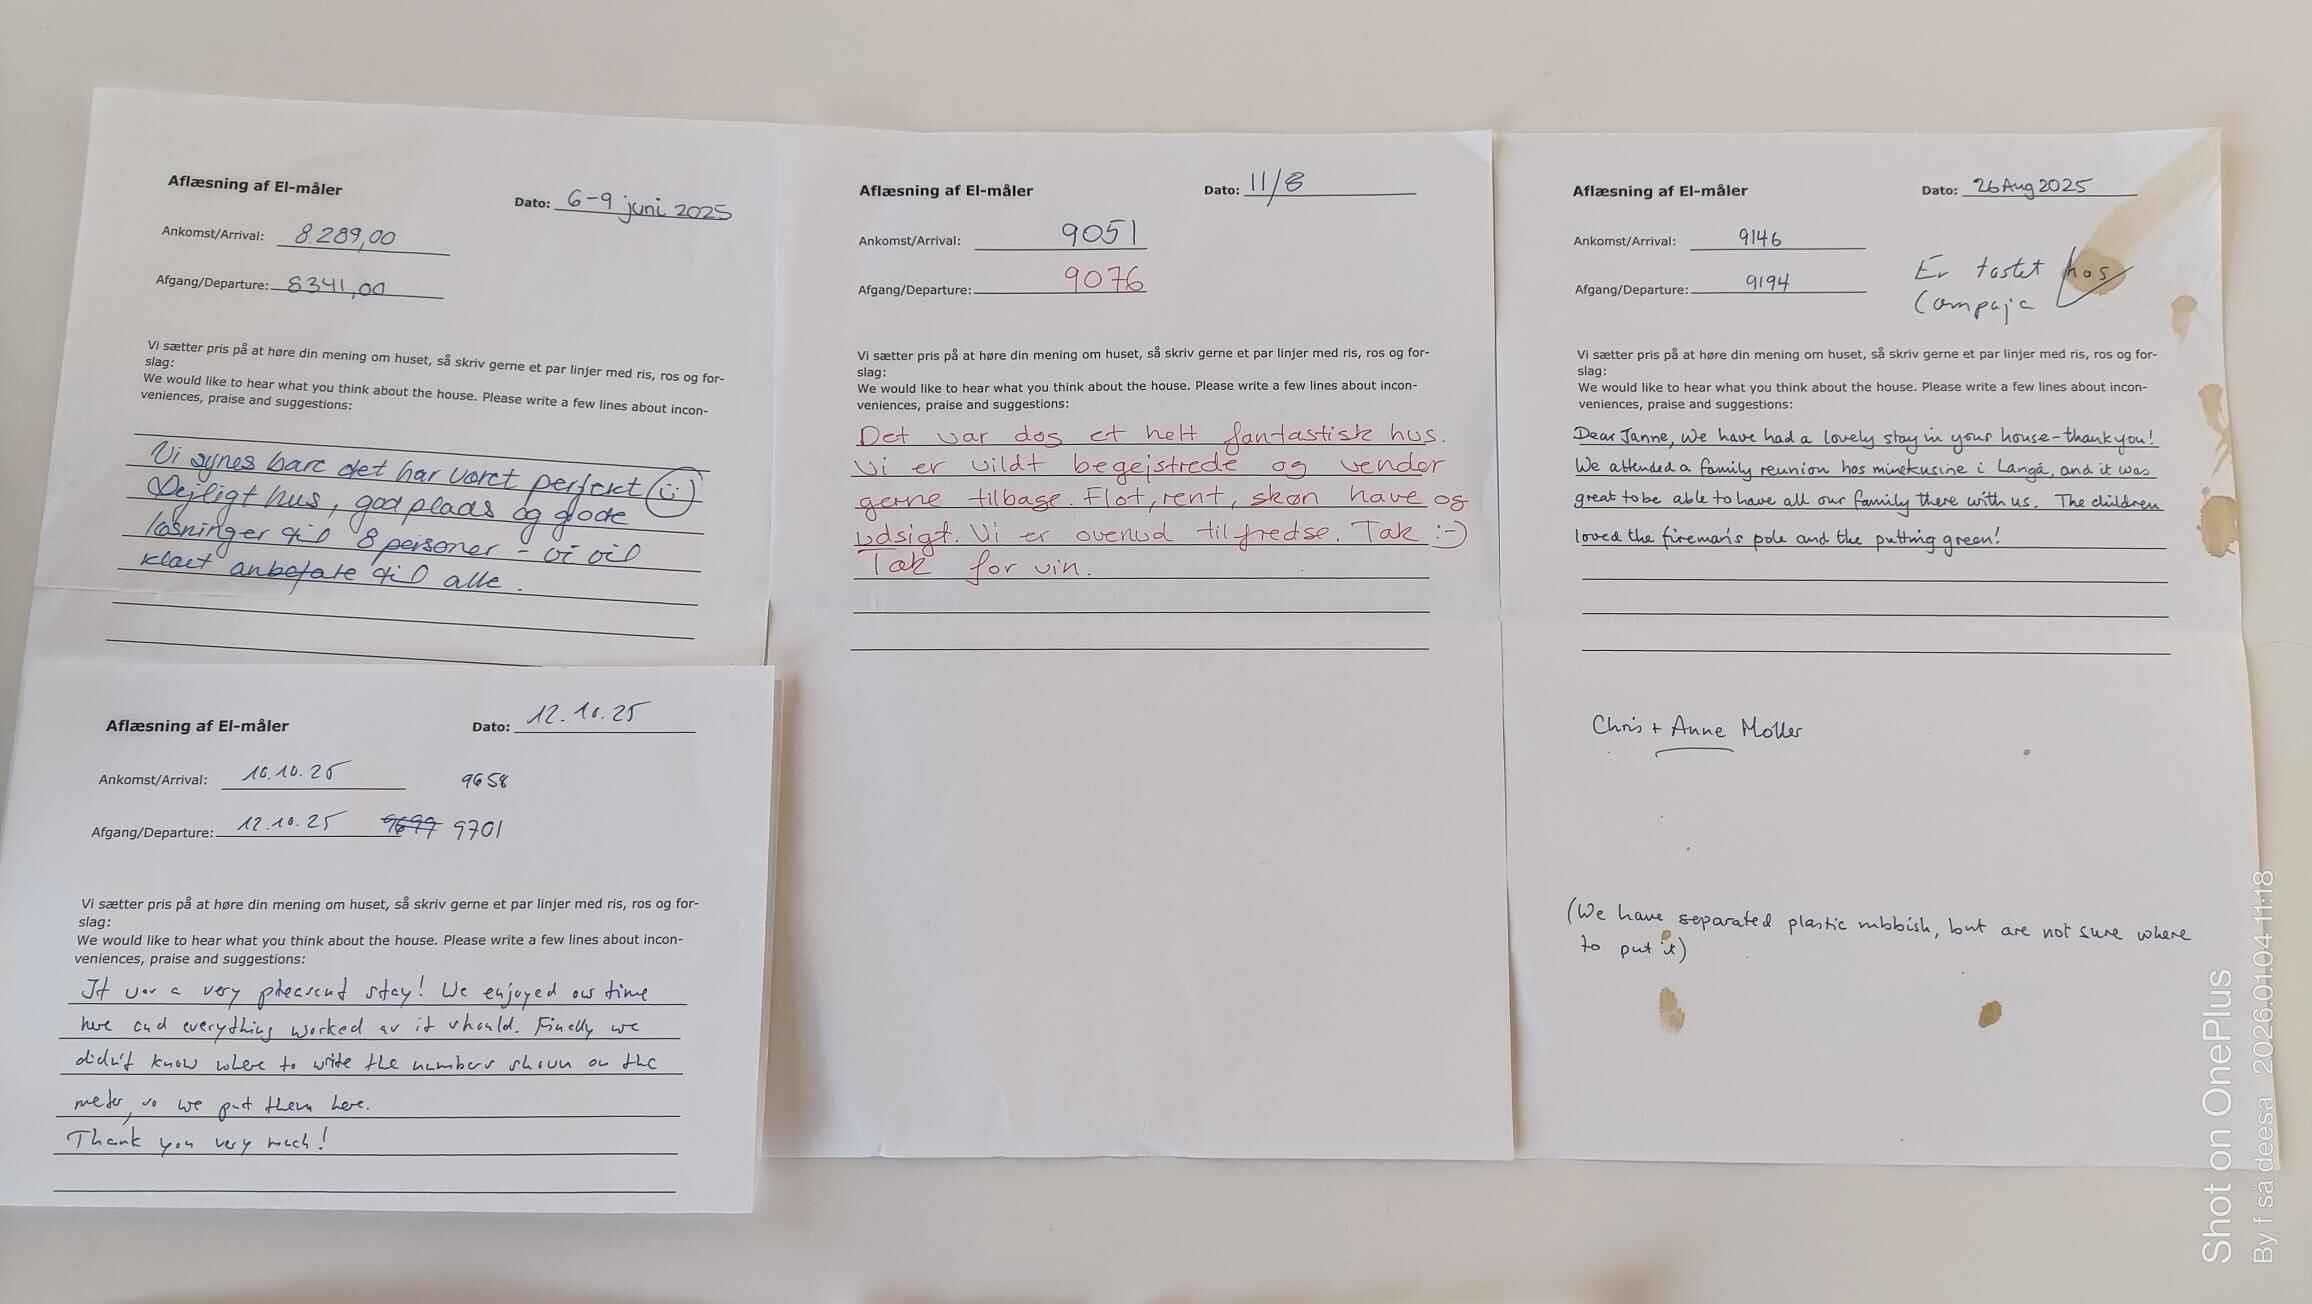 Aflæsning af El-måler
Dato: 6-9 juni 2025
Ankomst/Arrival: 8.289,00
Afgang/Departure: 8341,00
Vi sætter pris på at høre din mening om huset, så skriv gerne et par linjer med ris, ros og for-
slag:
We would like to hear what you think about the house. Please write a few lines about incon-
veniences, praise and suggestions:
Vi synes bare det har været perfekt
Dejligt hus, god plads og gode
løsninger til 8 personer - vi vil
klart anbefale til alle.
Aflæsning af El-måler
Dato: 11/8
Ankomst/Arrival: 9051
Afgang/Departure: 9076
Vi sætter pris på at høre din mening om huset, så skriv gerne et par linjer med ris, ros og for-
slag:
We would like to hear what you think about the house. Please write a few lines about incon-
veniences, praise and suggestions:
Det var dog et helt fantastisk hus.
Vi er vildt begejstrede og vender
gerne tilbage. Flot, rent, skøn have og
udsigt. Vi er overud tilfredse. Tak :-)
Tak for vin.
Aflæsning af El-måler
Dato: 26 Aug 2025
Ankomst/Arrival: 9146
Afgang/Departure: 9194
Er tastet hos
Campaja
Vi sætter pris på at høre din mening om huset, så skriv gerne et par linjer med ris, ros og for-
slag:
We would like to hear what you think about the house. Please write a few lines about incon-
veniences, praise and suggestions:
Dear Janne, We have had a lovely stay in your house - thank you!
We attended a family reunion hos min kusine i Langå, and it was
great to be able to have all our family there with us. The children
loved the fireman's pole and the putting green!
Chris + Anne Moller
(We have separated plastic rubbish, but are not sure where
to put it)
Aflæsning af El-måler
Dato: 12.10.25
Ankomst/Arrival: 10.10.25 9658
Afgang/Departure: 12.10.25 9699 9701
Vi sætter pris på at høre din mening om huset, så skriv gerne et par linjer med ris, ros og for-
slag:
We would like to hear what you think about the house. Please write a few lines about incon-
veniences, praise and suggestions:
It was a very pleasent stay! We enjoyed our time
here and everything worked as it should. Finally we
didn't know where to write the numbers shown on the
meter, so we put them here.
Thank you very much!
Shot on OnePlus
By f så deesa 2026.01.04 11:18